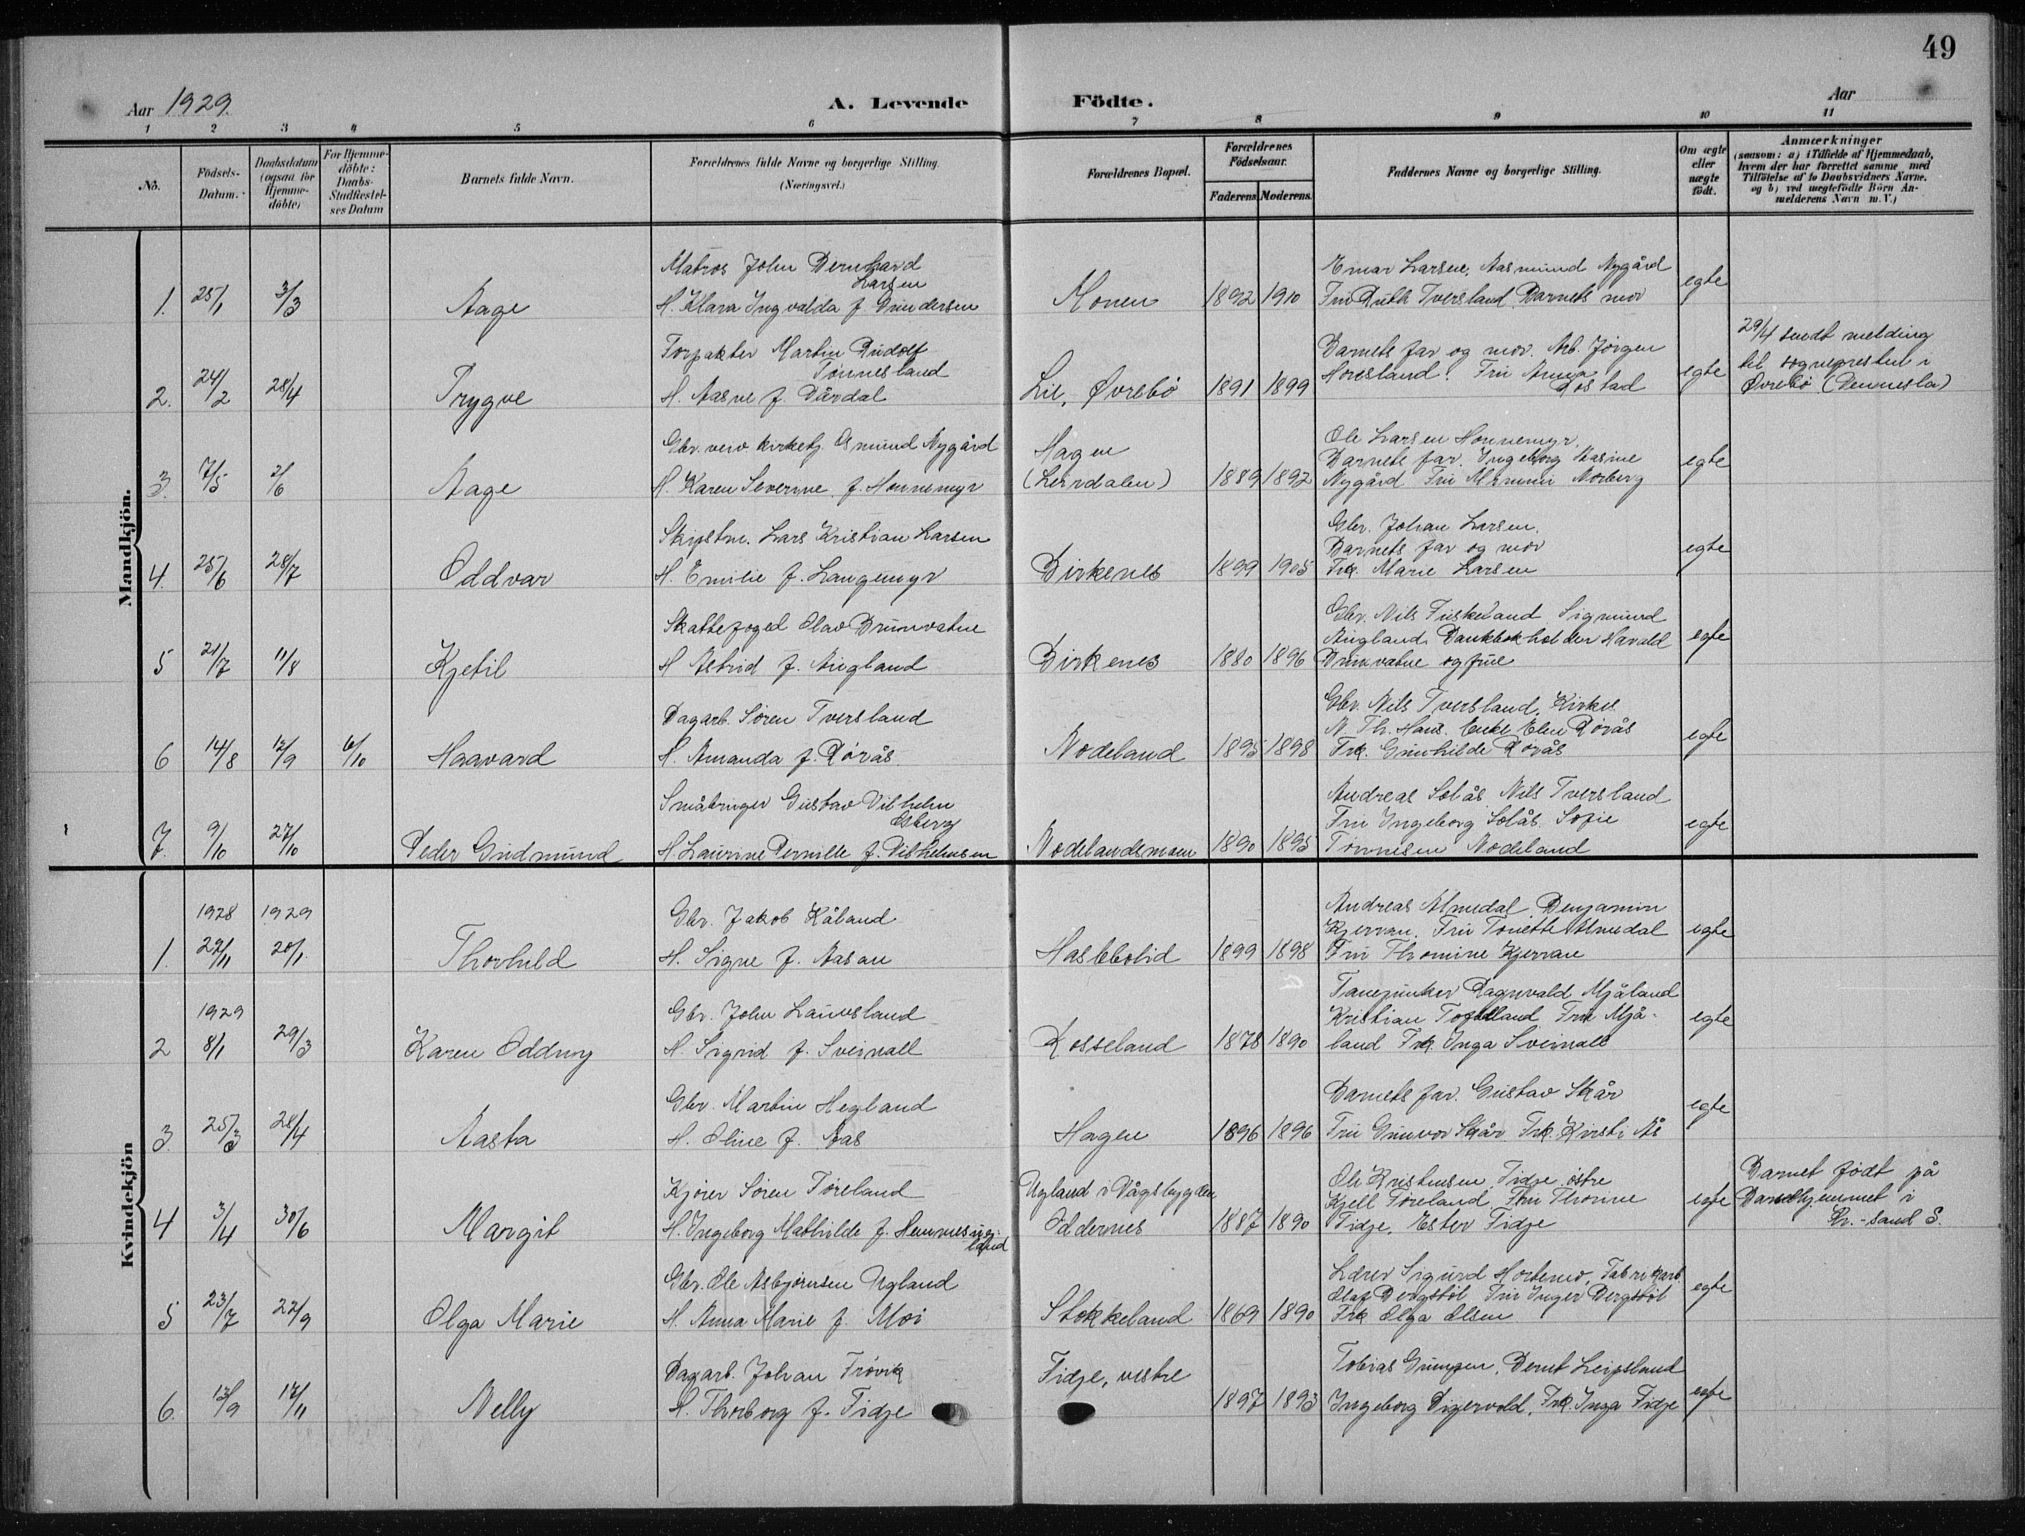 49
Aar 1929. A. Levende Födte. Aar
1 2 3 4 5 6 7 8 9 10 11
No. Födsels-Datum. Daabsdatum (ogsaa for Hjemme-döbte) For Hjemme-döbte: Daabs-Stadfæstel-ses Datum Barnets fulde Navn. Forældrenes fulde Navne og borgerlige Stilling. (Næringsvei.) Forældrenes Bopæl. Forældrenes Födselsaar. Faderens Moderens Faddernes Navne og borgerlige Stilling. Om ægte eller uægte födt. Anmærkninger (saasom: a) i Tilfælde af Hjemmedaab, hvem der har forrettet samme, med Tilföielse af to Daabsvidners Navne, og b) ved uægtefödte Börn An-melderens Navn m. V.)
Mandkjön.
Matros John Bernhard Larsen
Einar Larsen, Aasmund Nygård
1. 25/1 3/3 Aage H. Klara Ingvalda f. Gundersen Monen 1892 1910 Fru Ruth Tversland Barnets mor egte
Forpakter Martin Rudolf Tønnesland
Barnets far og mor. Arb. Jørgen
29/4 sendt melding
til sognepresten i
2. 24/2 28/4 Trygve H. Aasne f. Dårdal Lie, Øvrebø 1891 1899 Honesland. Fru Anna Rostad egte Øvrebø (Vennesla)
Gbr. Asmund Nygård
Hagen
Ole Larsen Honnemyr,
Barnets far. Ingeborg Aasine
3. 7/5 2/6 Aage H. Karen Severine f. Honnemyr (Leirdalen) 1889 1892 Nygård Fru Norberg egte
Skipstm. Lars Kristian Larsen
Gbr. Johan Larsen,
Barnets far og mor
4. 25/6 28/7 Oddvar H. Emilie f. Langemyr Birkenes 1899 1905 Frk. Marie Larsen egte
Skattefoged Olav Brunvatne
Gbr. Nils Fiskeland Sigmund
Augland Bankbokholder Harald
5 21/7 11/8 Kjetil H. Astrid f. Augland Birkenes 1880 1896 Brunvatne og frue egte
Dagarb. Søren Tversland
Gbr. Nils Tversland, Kirkes
N. Th. Haus. Enke Elen Røvås
6 14/8 12/9 6/10 Haavard H. Amanda f. Røvås. Nodeland 1895 1898 Frk. Gunhilde Røvås egte
Småbruger Gustav Vilhelm Esberg
Andreas Solås Nils Tversland
Fru Ingeborg Solås. Sofie
7. 9/10 27/10 Peder Gudmund H. Laurine Pernille f. Vilhelmsen Nodelandsmoen 1890 1895 Tønnesen Nodeland egte
Kvindekjön
1928 1929
Gbr. Jakob Kåland
Andreas Almedal Benjamin
Kjervan. Fru Tonette Almedal
1. 29/11 20/1 Thorhild H. Signe f. Aasan Haslebolid 1899 1898 Fru Thomine Kjervan egte
1929
Gbr. John Lauvsland
Fanejunker Ragnvald Mjåland
Kristian Fru Mjå-
2 8/1 29/3 Karen Oddny H. Sigrid f. Sveinall Rosseland 1878 1890 land Frk. Inga Sveinall egte
Gbr. Martin Hegland
Barnets far. Gustav Skår
3. 25/3 28/4 Aasta H. Oline f. Aas Hagen 1896 1896 Fru Gunvor Skår Frk. Kirsti Ås egte
Kjører Søren Føreland
Ugland i Vågsbygden,
Ole Kristensen Fidje østre
Kjell Føreland Fru Thomine
Barnet født på
Barselhjemmet i
4 3/4 30/6 Margit H. Ingeborg Mathilde f. Hemnesug-land Oddernes 1887 1890 Fidje, Ester Fidje egte Kr.-sand S.
Gbr. Ole Asbjørnsen Ugland
Lærer Sigurd Hortemo, Fabrikarb.
Olaf Bergstøl Fru Inger Bergstøl
5 23/7 22/9 Olga Marie H. Anna Marie f. Moi Stokkeland 1869 1890 Frk Olga Olsen egte
Dagarb. Johan Frøvik
Fidje, vestre
Tobias Gumpen, Bernt Leipsland
6. 13/9 17/11 Nelly H. Thorborg f. Fidje 1897 1893 Ingeborg Digervold, Frk. Inga Fidje egte